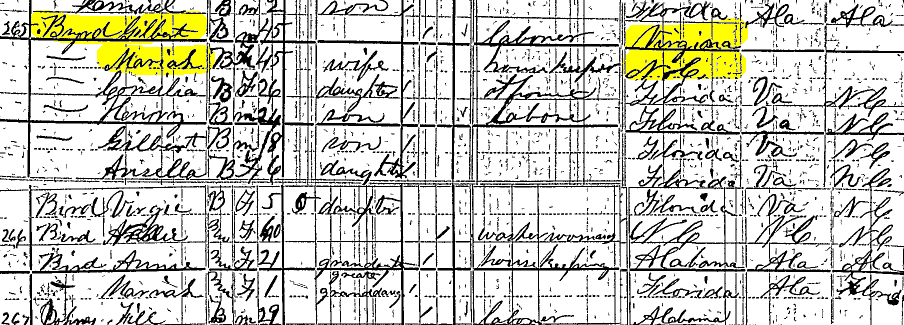 Samuel B m 2 son Florida Ala Ala
265 Byrd Gilbert B m 45 / laborer Virginia
— Mariah B F 45 wife / housekeeper N.C.
— Concilia B F 26 daughter / at home Florida Va N C
— Henry B m 24 son / Labore Florida Va N C
— Gilbert B m 18 son / Florida Va N C
Ansella B F 6 daughter / Florida Va N C
Bird Virgie B F 5 daughter Florida Va N C
266 Bird F 60 / washerwoman N C N C N C
Bird Annie F 21 / housekeeping Alabama Ala Ala
Mariah F 1 great granddaug Florida Ala Florid
267 B m 29 / laboner Alabama